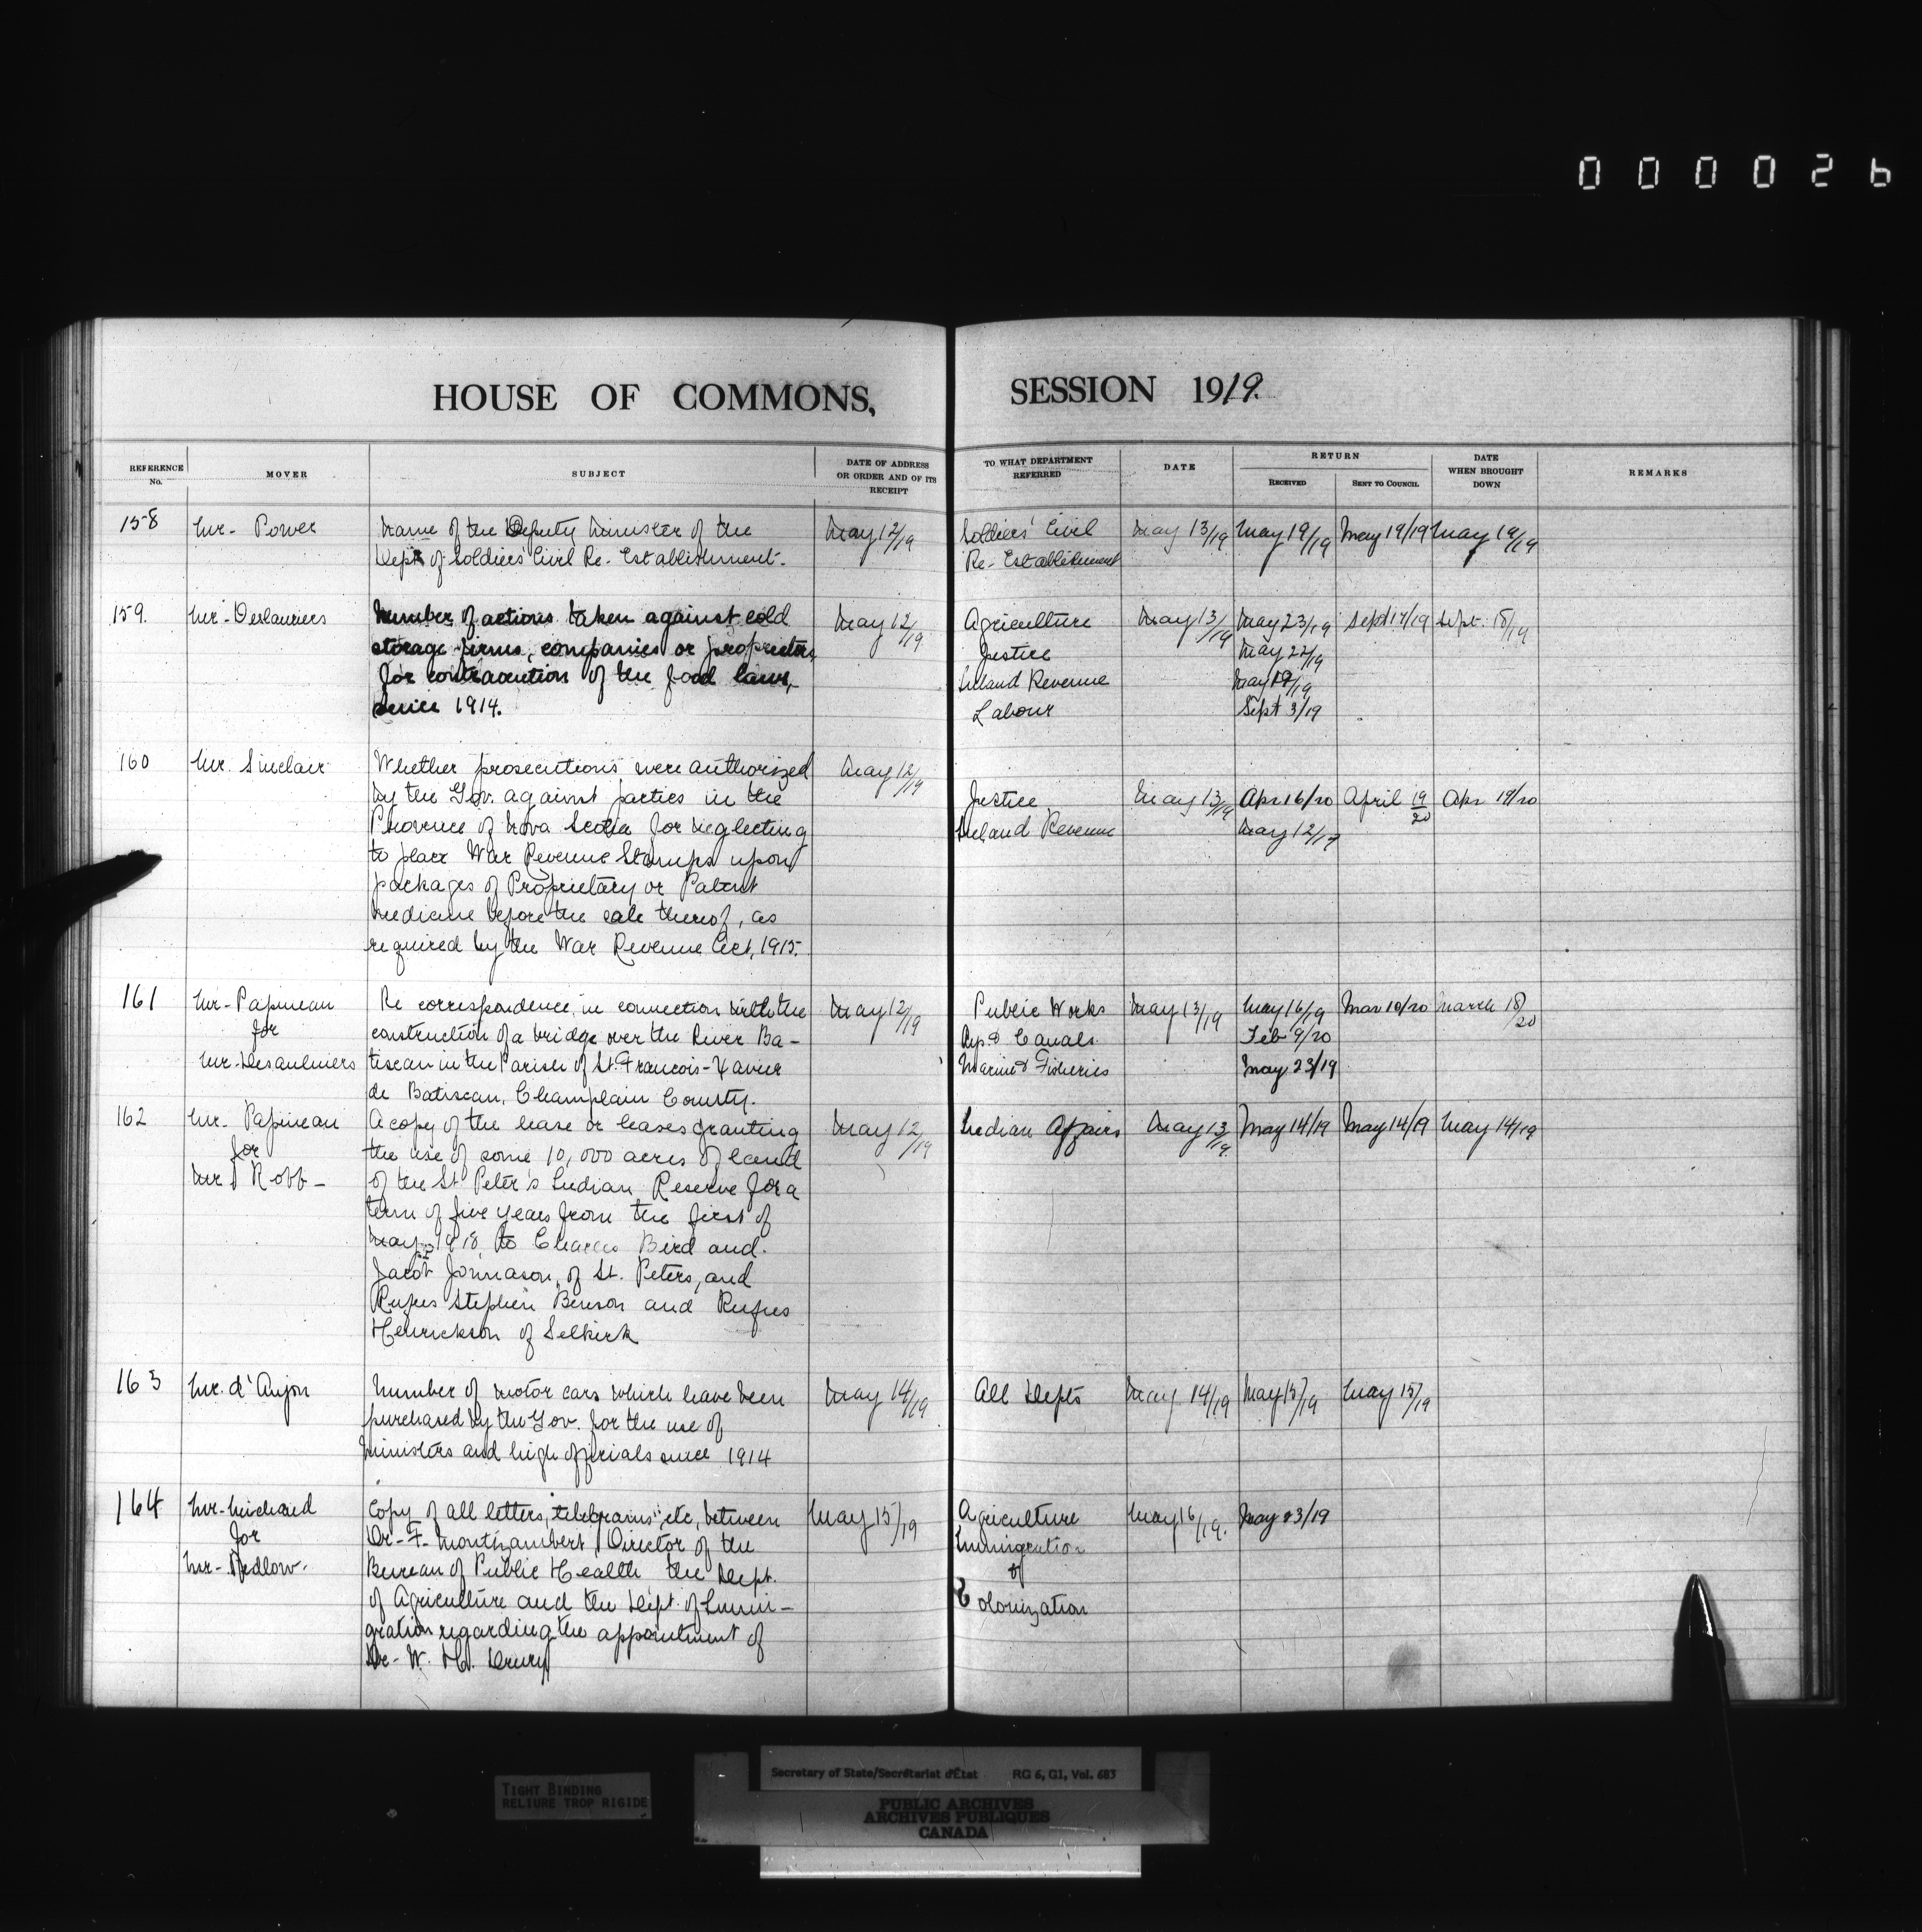 000026
HOUSE OF COMMONS, SESSION 1919.
REFERENCE No. MOVER SUBJECT DATE OF ADDRESS OR ORDER AND OF ITS RECEIPT TO WHAT DEPARTMENT REFERRED DATE RETURN RECEIVED SENT TO COUNCIL DATE WHEN BROUGHT DOWN REMARKS
158 Mr. Power Name of the Deputy Minister of the May 12/19 Soldiers' Civil May 13/19 May 19/19 May 19/19 May 19/19
Dept of Soldiers' Civil Re-Establishment. Re-Establishment
159. Mr. Deslauriers Number of actions taken against cold May 12/19 Agriculture May 13/19 May 23/19 Sept 17/19 Sept. 18/19
storage firms, companies or proprietors Justice May 22/19
for contravention of the food laws, Inland Revenue May 19/19
since 1914. Labour Sept 3/19
160 Mr. Sinclair Whether prosecutions were authorized May 12/19
by the Gov. against parties in the Justice May 13/19 Apr 16/20 April 19/20 Apr 19/20
Province of Nova Scotia for neglecting Inland Revenue May 12/19
to place War Revenue Stamps upon
packages of Proprietary or Patent
medicine before the sale thereof, as
required by the War Revenue Act, 1915.
161 Mr. Papineau Re correspondence in connection with the May 12/19 Public Works May 13/19 May 16/19 Mar 10/20 March 18/20
for construction of a bridge over the River Ba- Rys. & Canals Feb 9/20
Mr. Desaulniers tiscan in the Parish of St. Francois-Xavier Marine & Fisheries May 23/19
de Batiscan, Champlain County.
162 Mr. Papineau A copy of the lease or leases granting May 12/19 Indian Affairs May 13/19. May 14/19 May 14/19 May 14/19
for the use of some 10,000 acres of land
Mr Robb - of the St Peter's Indian Reserve for a
term of five years from the first of
May 1918, to Charles Bird and
Jacob Johnason, of St. Peters, and
Rufus Stephen Benson and Rufus
Henrickson of Selkirk
163 Mr. d'Anjou Number of motor cars which have been May 14/19 All Depts May 14/19 May 15/19 May 15/19
purchased by the Gov. for the use of
Ministers and high officials since 1914
164 Mr. Michaud Copy of all letters, telegrams, etc, between May 15/19 Agriculture May 16/19. May 23/19
for Dr. F. Montizambert, Director of the Immigration
Mr. Pedlow. Bureau of Public Health the Dept. &
of Agriculture and the Dept. of Immi- Colonization
gration regarding the appointment of
Dr. W. H. Drury
TIGHT BINDING
RELIURE TROP RIGIDE
Secretary of State/Secrétariat d'État RG 6, G1, Vol. 683
PUBLIC ARCHIVES
ARCHIVES PUBLIQUES
CANADA